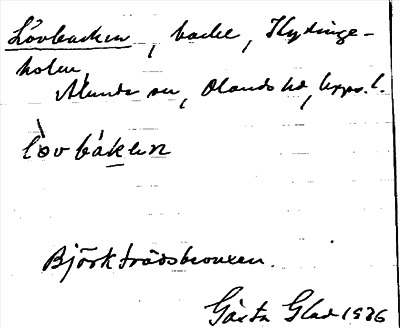 Lövbacken, backe, Hydinge-
holm,
Alunda sn, Olands hd, Upps. l.
lòv bákən
Björkträdsbevuxen.
Gösta Glad 1926